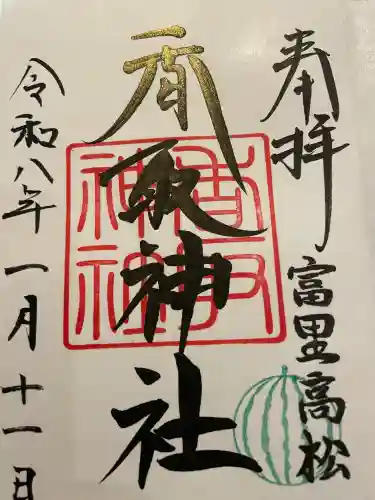 奉拝
富里高松
香取神社
香取
神社
令和八年一月十一日